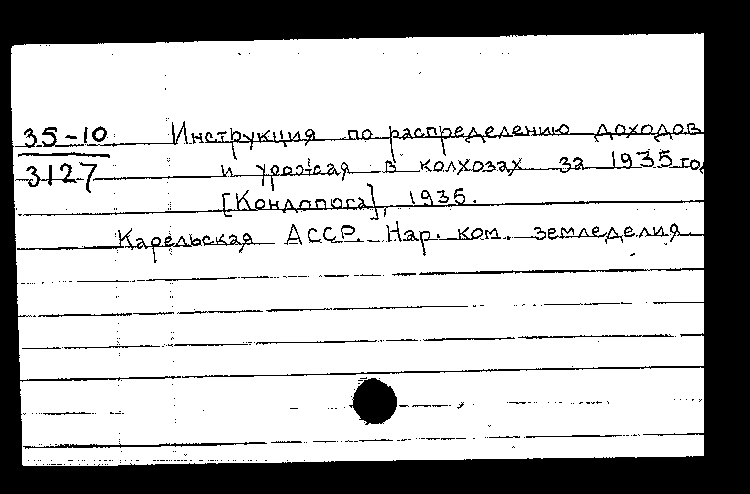 35-10 Инструкция по распределению доходов
3127 и урожая в колхозах за 1935 го
[Кондопога], 1935.
Карельская АССР. Нар. ком. земледелия.